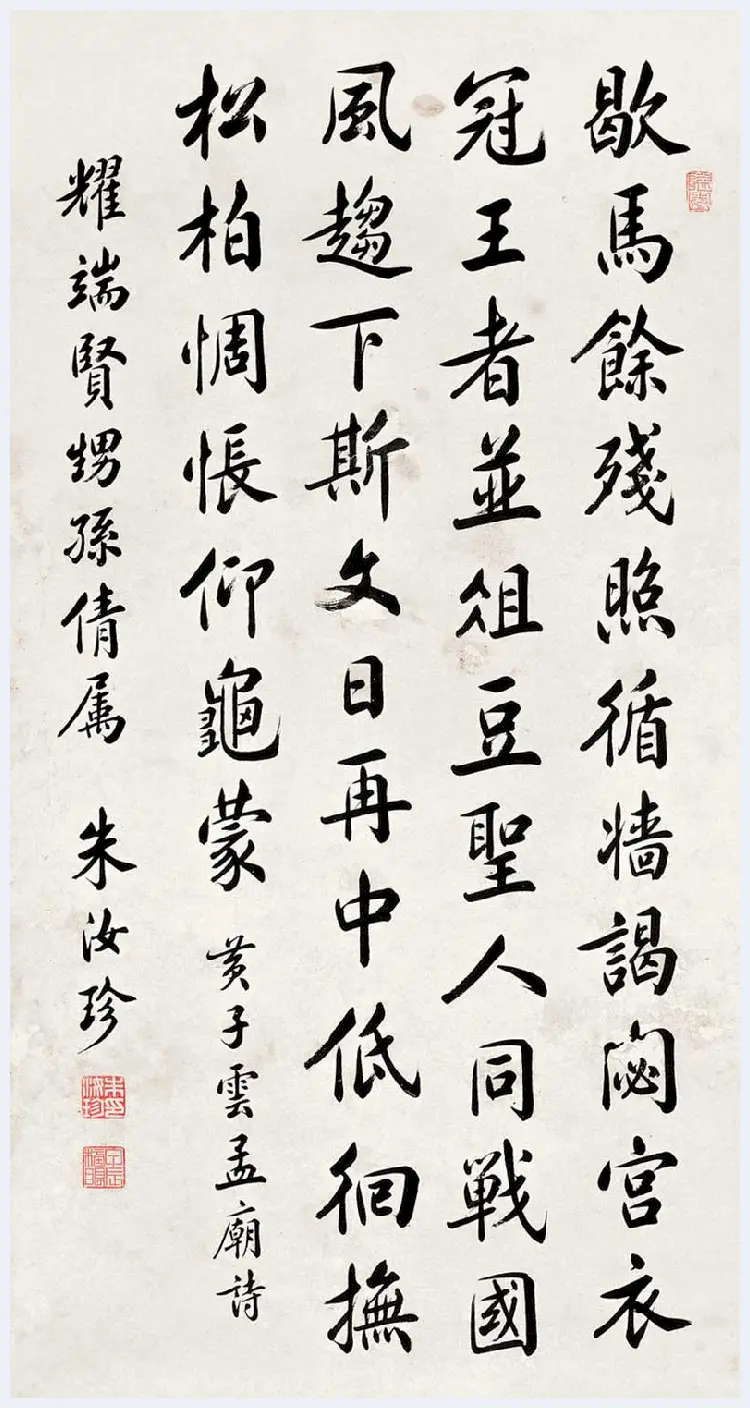 歇馬餘殘照循墙謁閟宮衣
冠王者並俎豆聖人同戰國
風趨下斯文日再中低徊撫
松柏惆悵仰龜蒙 黃子雲孟廟詩
耀端賢甥孫倩属 朱汝珍